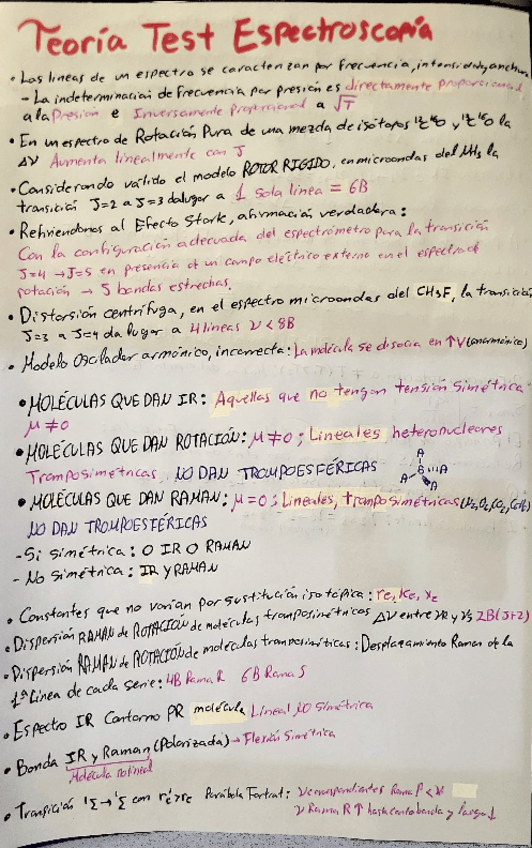 Teoría Test Espectroscopía
• Las lineas de un espectro se caracterizan por frecuencia, intensidad y anchura
- La indeterminación de frecuencia por presión es directamente proporcional
a la Presión e Inversamente Proporcional a √T
• En un espectro de Rotación Pura de una mezcla de isótopos y la
Δν Aumenta linealmente con J
• Considerando valido el modelo ROTOR RIGIDO, en microondas del NH₃ la
transición J=2 a J=3 da lugar a 1 sola linea = 6B
• Refiriendonos al Efecto Stark, afirmación verdadera:
Con la configuración adecuada del espectrómetro para la transición
J=4 → J=5 en presencia de un campo eléctrico externo en el espectro de
rotación → 5 bandas estrechas.
• Distorsión centrífuga, en el espectro microondas del CH₃F, la transición
J=3 a J=4 da lugar a 4 lineas ν < 8B
• Modelo Oscilador armónico, incorrecta: La molécula se disocia en ↑V (anarmónico)
• MOLÉCULAS QUE DAN IR: Aquellas que no tengan tensión simétrica
μ ≠ 0
• MOLÉCULAS QUE DAN ROTACIÓN: μ ≠ 0 ; Lineales heteronucleares
Tromposimétricas, NO DAN TROMPOESFÉRICAS
A
A B A
A
• MOLÉCULAS QUE DAN RAMAN: μ = 0 ; Lineales, tromposimétricas
NO DAN TROMPOESFÉRICAS
- Si simétrica: O IR O RAMAN
- No simétrica: IR y RAMAN
• Constantes que no varian por sustitución isotópica: re, Ke, Xe
• Dispersión RAMAN de ROTACIÓN de moléculas tromposimétricas Δν entre νR y νS 2B(J+2)
• Dispersión RAMAN de ROTACIÓN de moléculas tromposimétricas: Desplazamiento Raman de la
1ª Linea de cada serie: 4B Rama R 6B Rama S
• Espectro IR Contorno PR molécula Lineal NO Simétrica
• Banda IR y Raman (Polarizada) → Flexión Simétrica
Molécula no lineal
• Transición ¹Σ → ¹Σ con re' > re Parábola Fortrat: ν correspondientes Rama P <
ν Rama R ↑ hasta banda y luego ↓